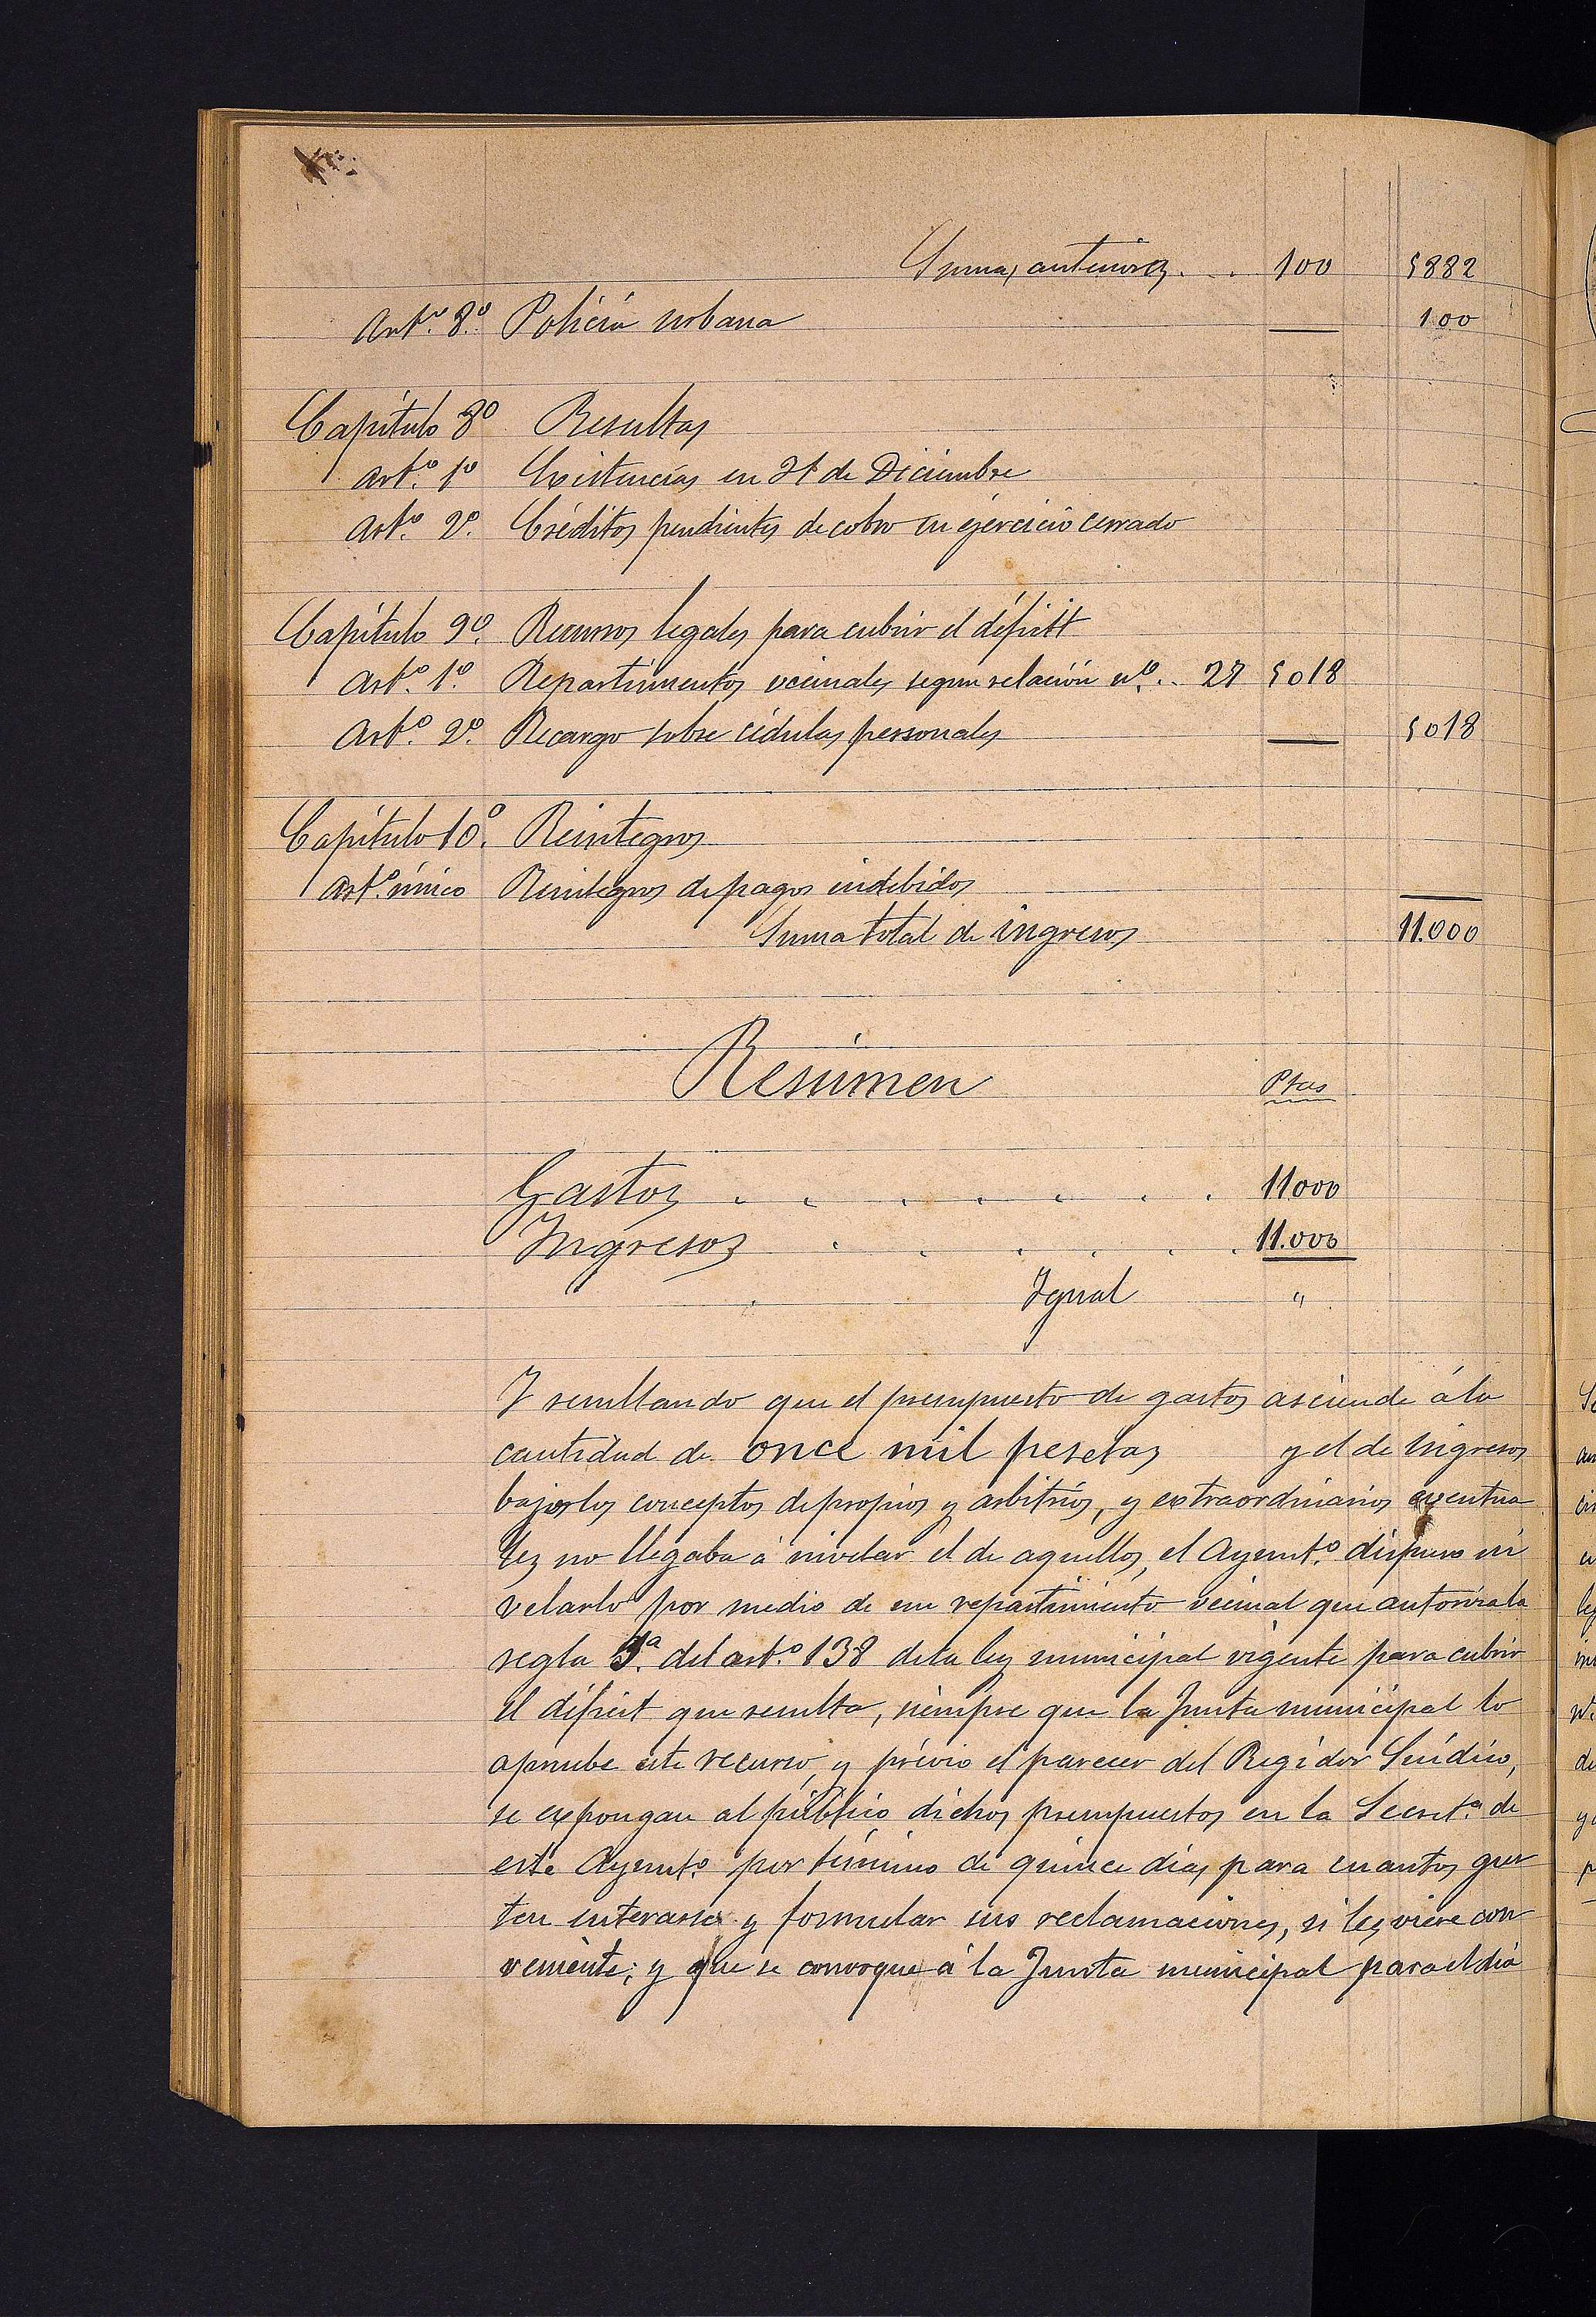 Sumas anteriores . . 100 5882
Artº 8º Policía urbana 100
Capítulo 8º Resultas
Artº 1º Existencias en 31 de Diciembre
Artº 2º Créditos pendientes de cobro en ejercicio cerrado
Capítulo 9º Recursos legales para cubrir el déficit
Artº 1º Repartimientos vecinales segun relación nº .. 27 5018
Artº 2º Recargo sobre cédulas personales 5018
Capítulo 10º Reintegros
Artº único Reintegros de pagos indebidos
Suma total de ingresos 11.000
Resúmen Ptas
Gastos . . . . . . . 11000
Ingresos . . . . . . 11.000
Igual "
Y resultando que el presupuesto de gastos asciende á la
cantidad de once mil pesetas y el de ingresos
bajo los conceptos de propios y arbitrios, y extraordinarios eventua
les no llegaba á nivelar el de aquellos, el Ayuntº dispuso ni
velarlo por medio de un repartimiento vecinal que autoriza la
regla 3ª del artº 138 de la ley municipal vigente para cubrir
el déficit que resulta, siempre que la Junta municipal lo
apruebe este recurso, y prévio el parecer del Regidor Síndico,
se expongan al público dichos presupuestos en la Secretª de
este Ayuntº por término de quince dias para cuantos gus
ten enterarse y formular sus reclamaciones, si les viere con
veniente; y que se convoque á la Junta municipal para el dia